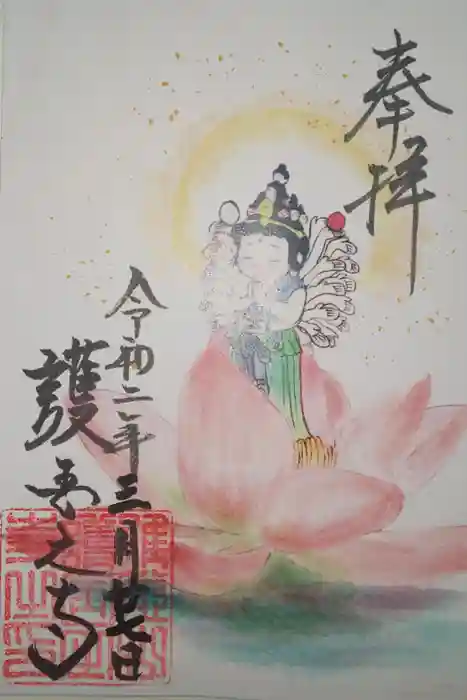 奉拝
令和二年三月廿七日
護吾之寺